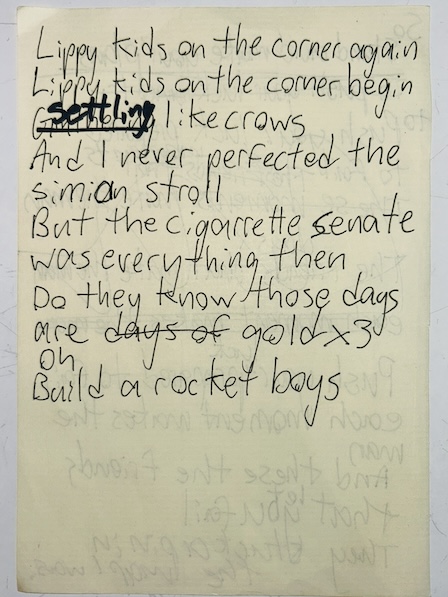 Lippy kids on the corner again
Lippy kids on the corner begin
settling like crows
And I never perfected the
simian stroll
But the cigarrette senate
was everything then
Do they know those days
are days of gold x3
oh
Build a rocket boys